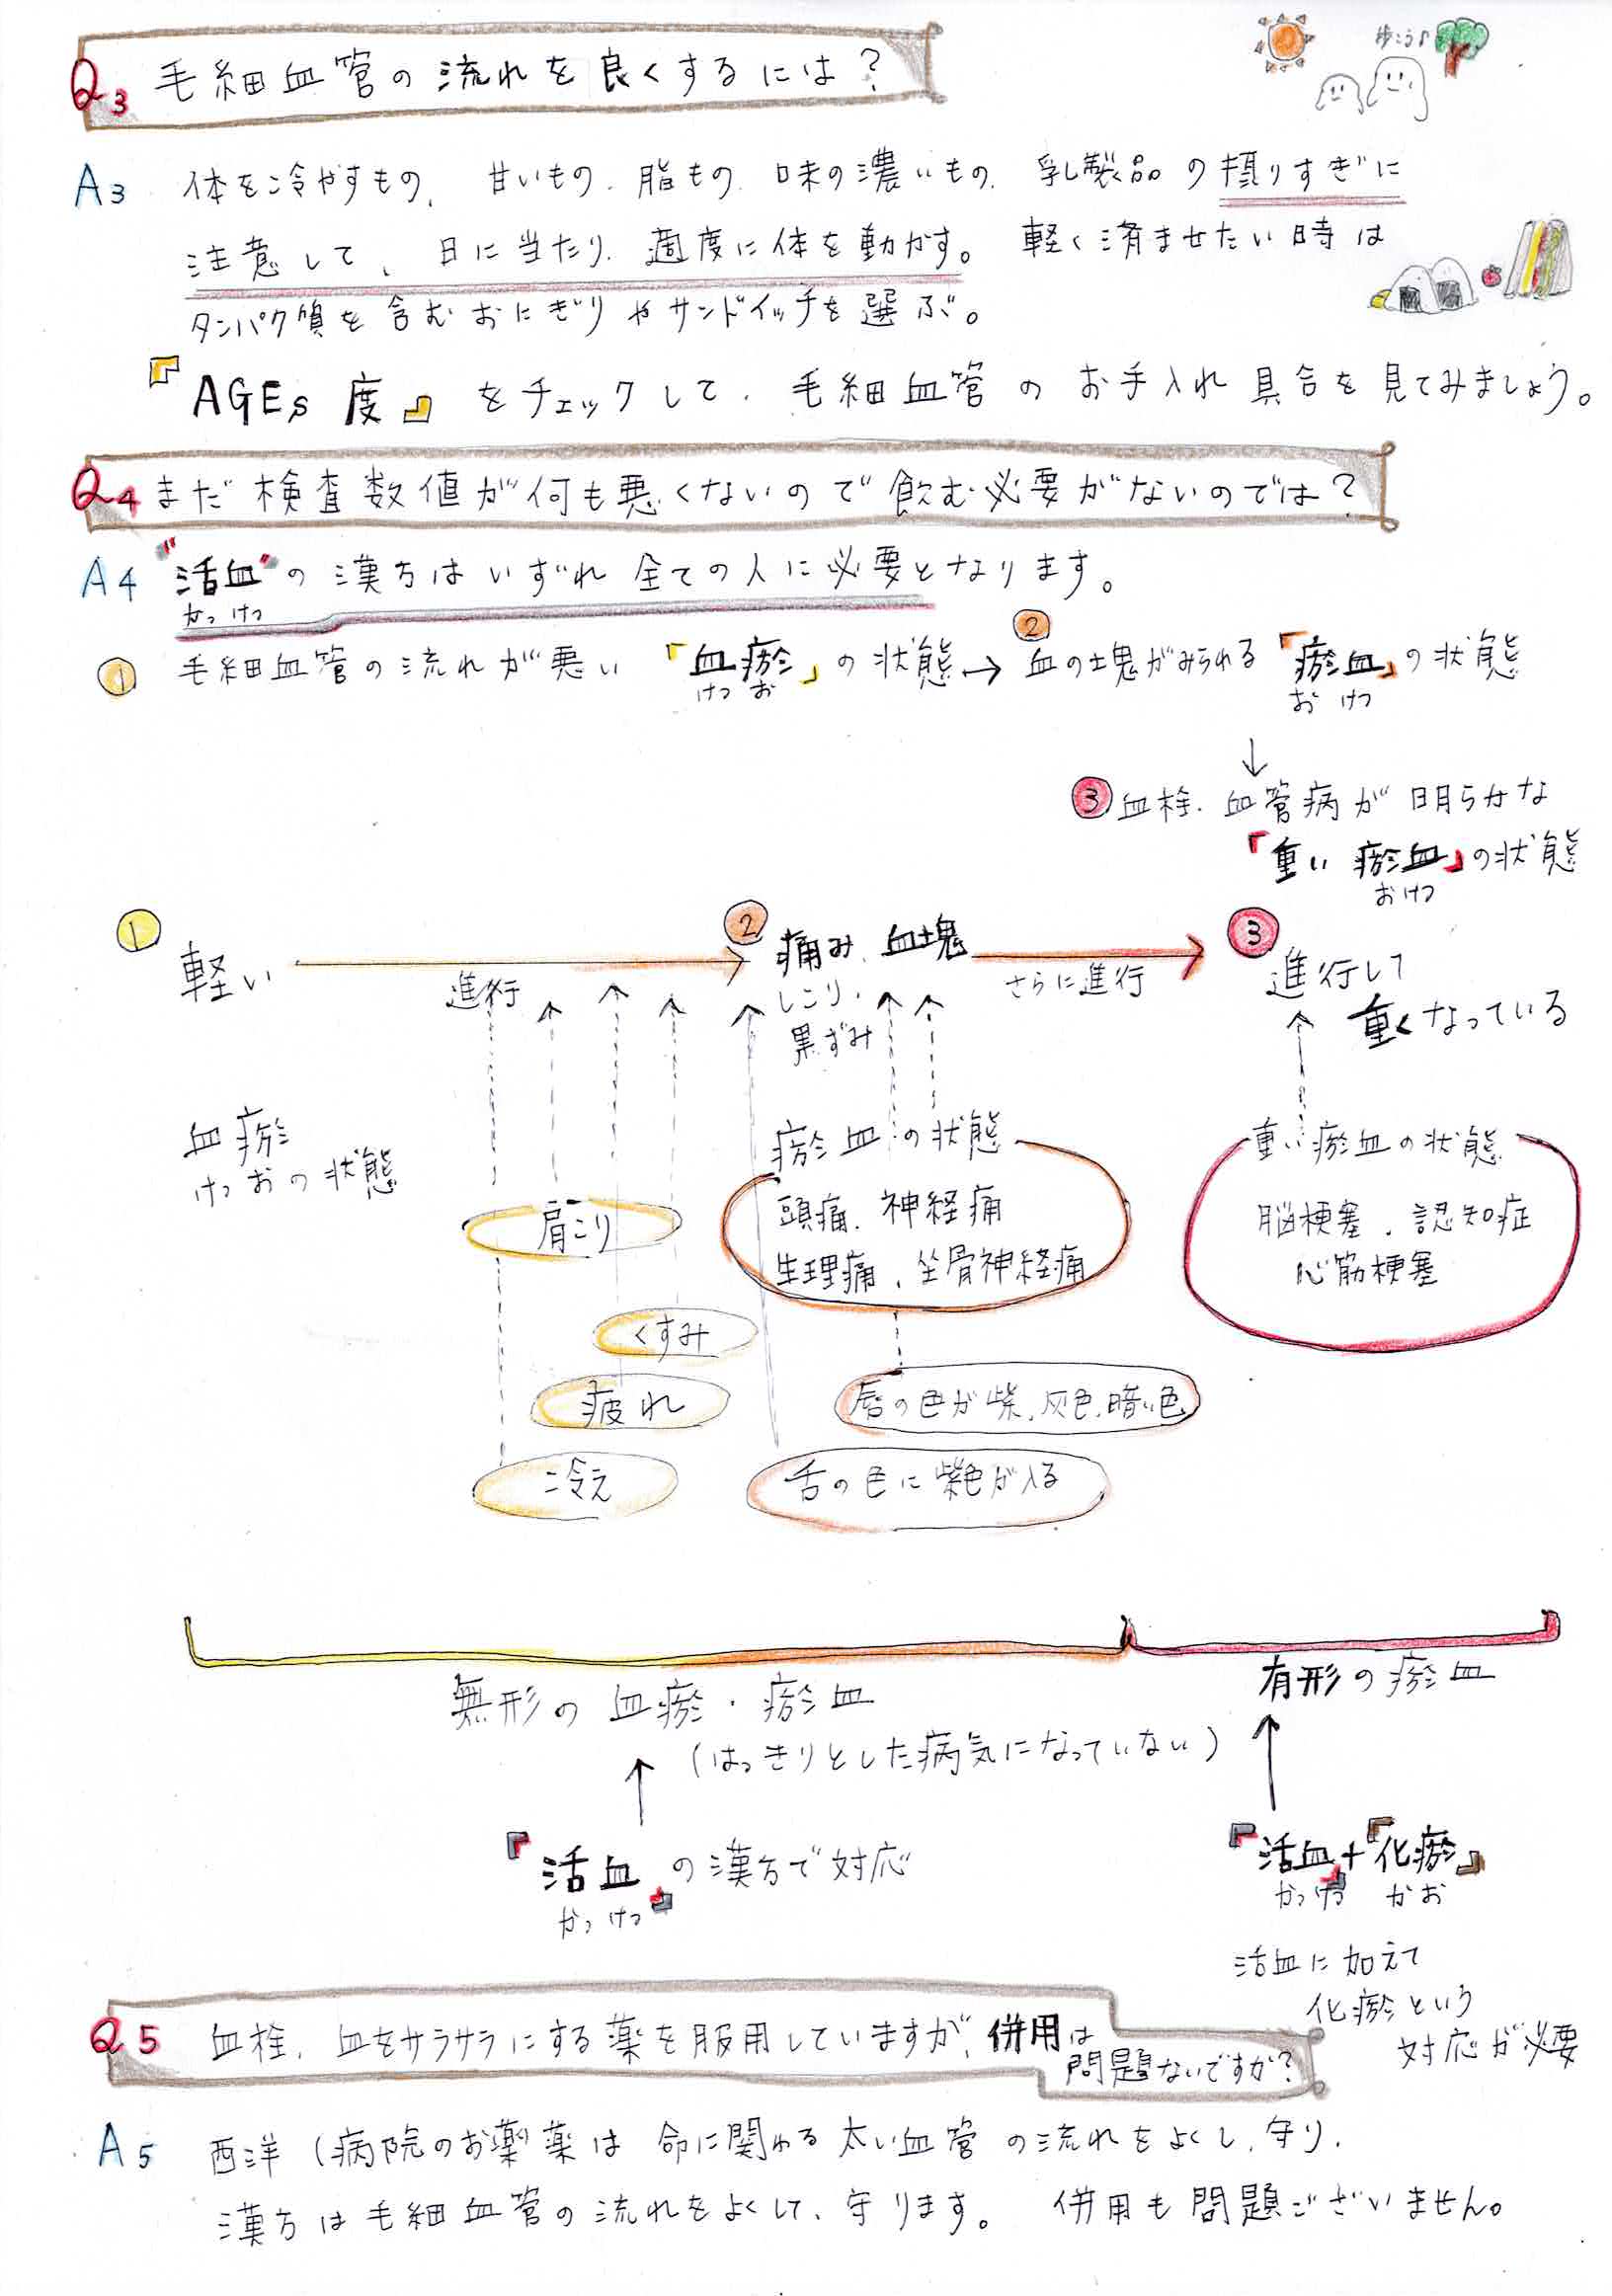 歩こう♪
Q3 毛細血管の流れを良くするには？
A3 体を冷やすもの、甘いもの、脂もの、味の濃いもの、乳製品の摂りすぎに
注意して、日に当たり、適度に体を動かす。軽く済ませたい時は
タンパク質を含むおにぎりやサンドイッチを選ぶ。
『AGEs度』をチェックして、毛細血管のお手入れ具合を見てみましょう。
Q4 まだ検査数値が何も悪くないので飲む必要がないのでは？
A4 "活血"の漢方はいずれ全ての人に必要となります。
かっけつ
① 毛細血管の流れが悪い「血瘀」の状態→②血の塊がみられる『瘀血』の状態
けつお おけつ
↓
③血栓、血管病が明らかな
『重い瘀血』の状態
おけつ
① 軽い 進行 ② 痛み、血塊 さらに進行 ③ 進行して
しこり、
黒ずみ
重くなっている
血瘀
けつおの状態
瘀血の状態
重い瘀血の状態
肩こり
頭痛、神経痛
生理痛、坐骨神経痛
脳梗塞、認知症
心筋梗塞
くすみ
疲れ
唇の色が紫、灰色、暗い色
冷え
舌の色に紫色が入る
無形の血瘀・瘀血
(はっきりとした病気になっていない)
有形の瘀血
↑
『活血』の漢方で対応
かっけつ
↑
『活血』+『化瘀』
かっけつ かお
活血に加えて
化瘀という
対応が必要
Q5 血栓、血をサラサラにする薬を服用していますが、併用は
問題ないですか？
A5 西洋(病院のお薬)薬は命に関わる太い血管の流れをよくし、守り、
漢方は毛細血管の流れをよくして、守ります。併用も問題ございません。